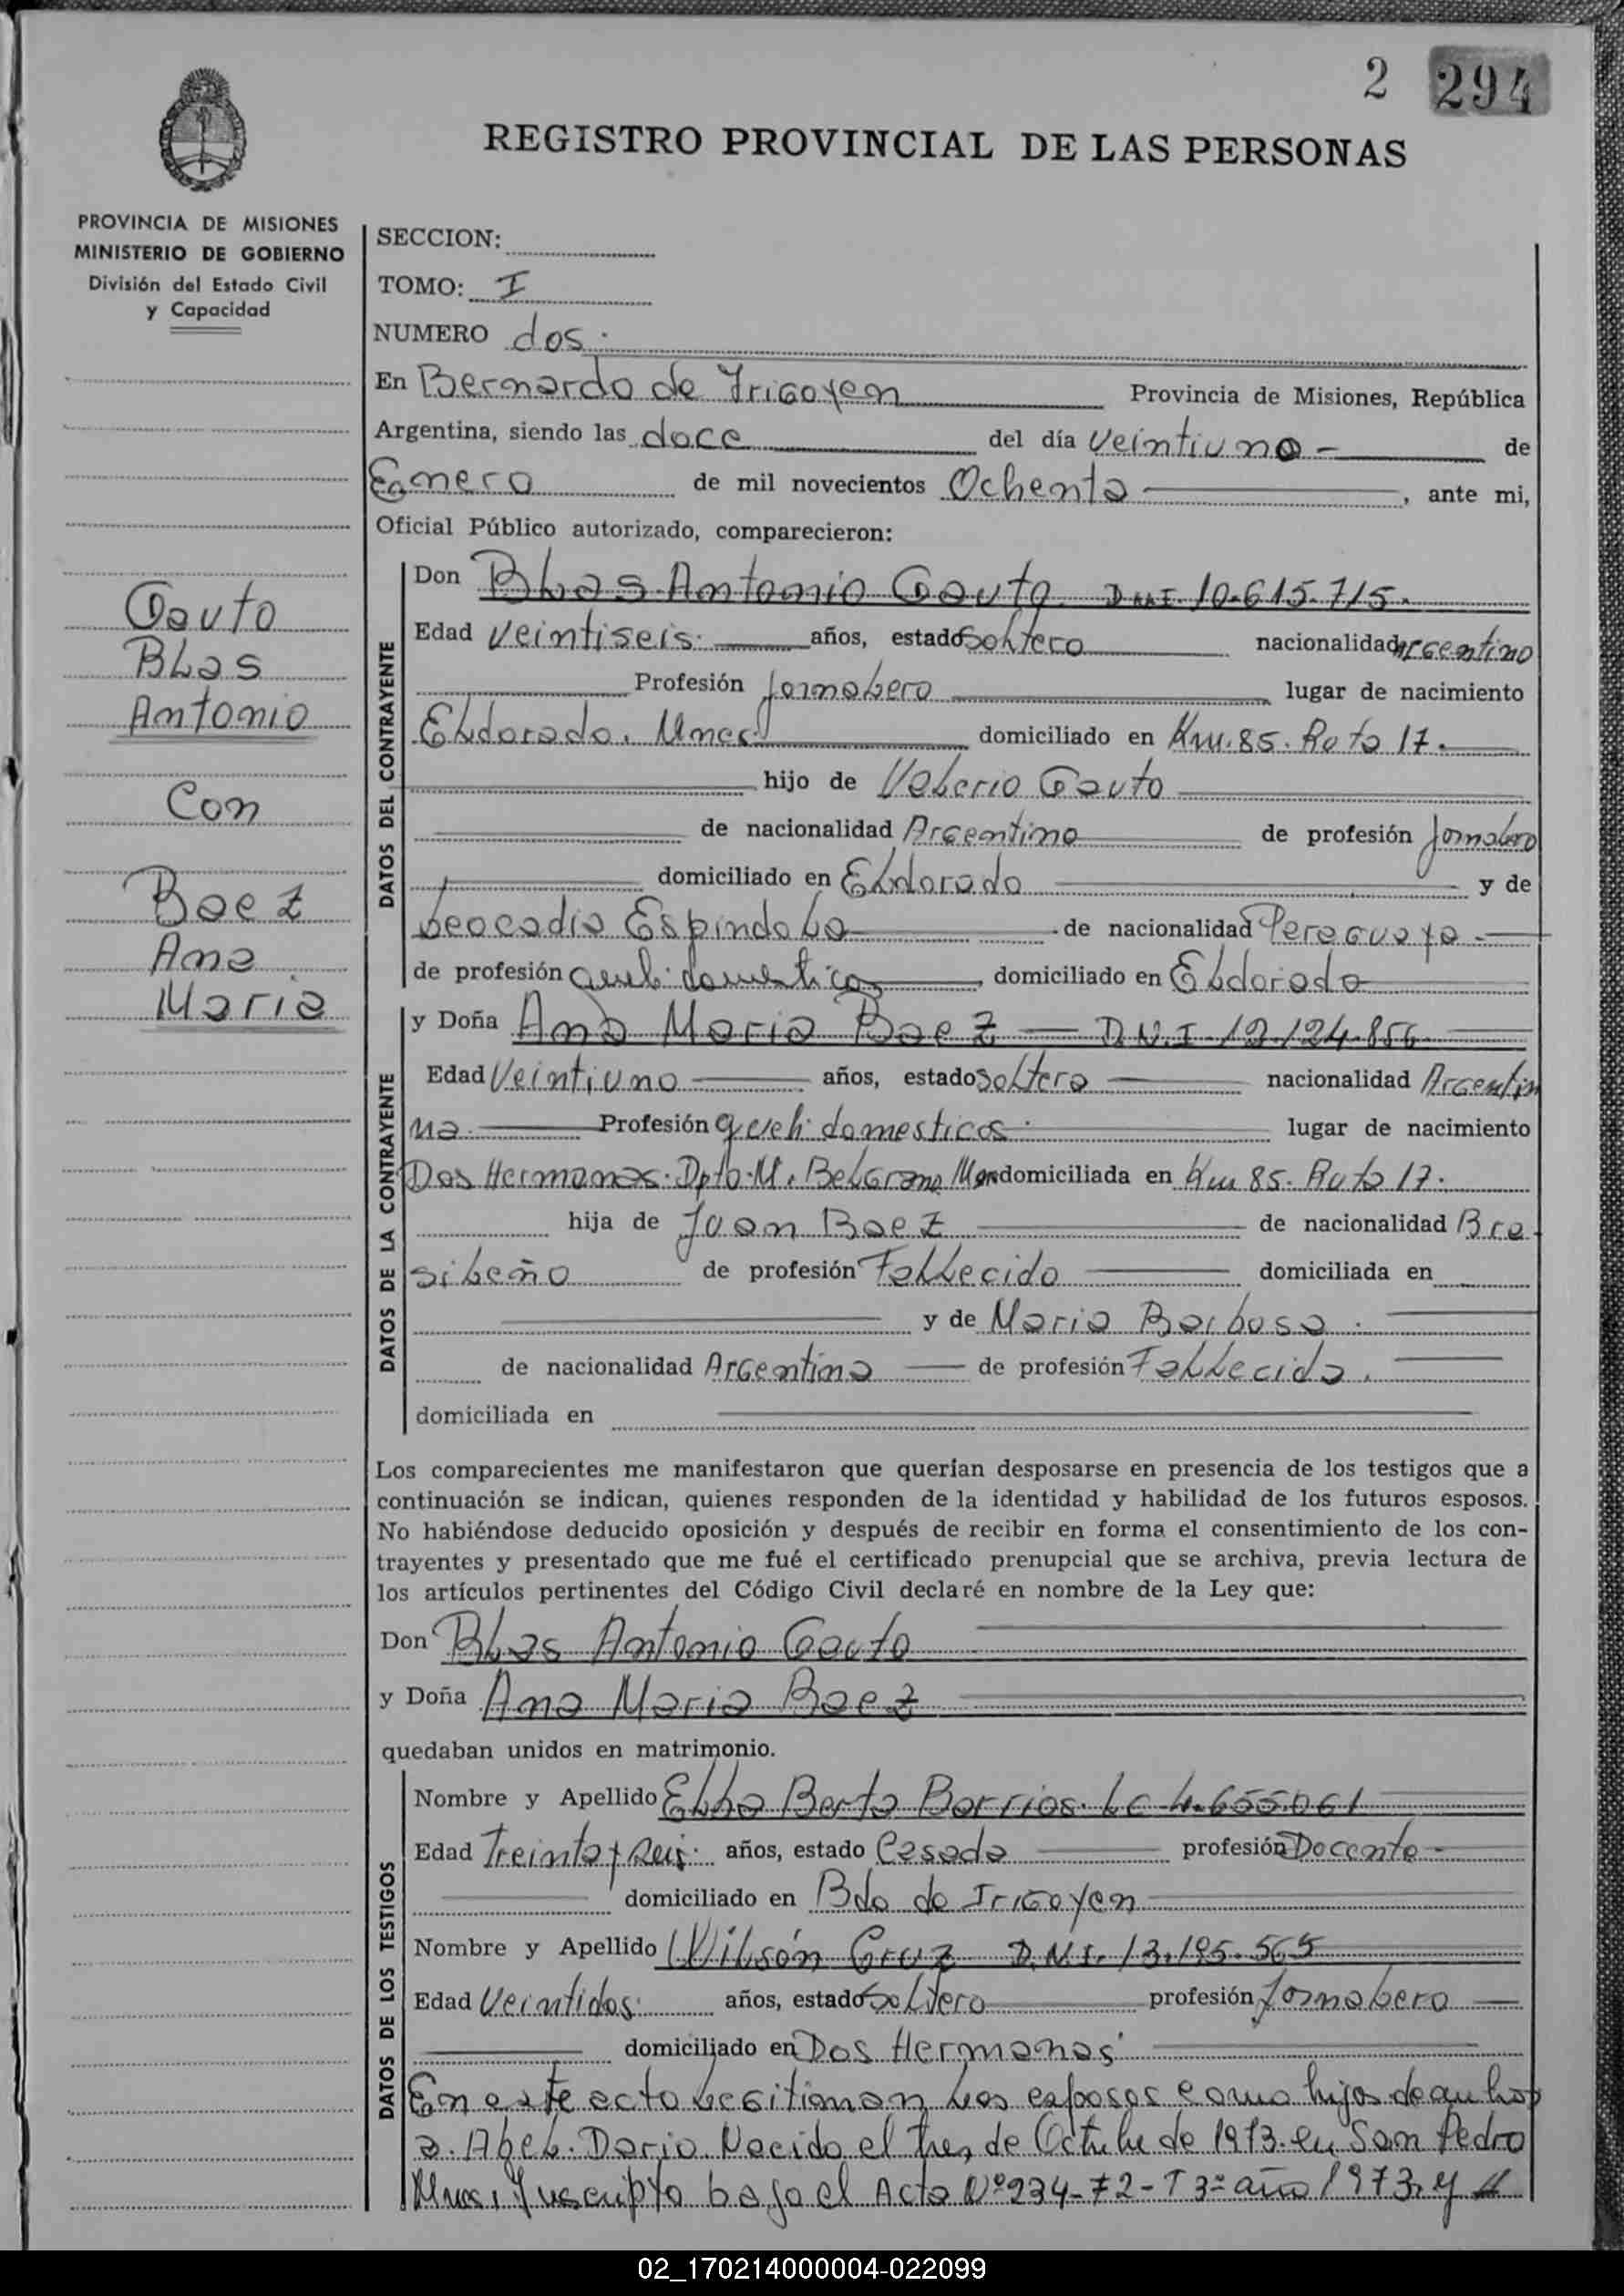 2 294
REGISTRO PROVINCIAL DE LAS PERSONAS
PROVINCIA DE MISIONES
MINISTERIO DE GOBIERNO
División del Estado Civil
y Capacidad
Gauto
Blas
Antonio
Con
Baez
Ana
Maria
SECCION:
TOMO: I
NUMERO dos.
En Bernardo de Irigoyen Provincia de Misiones, República
Argentina, siendo las doce del día veintiuno de
Enero de mil novecientos Ochenta, ante mi,
Oficial Público autorizado, comparecieron:
DATOS DEL CONTRAYENTE
Don Blas Antonio Gauto. D.N.I. 10.615.715.
Edad veintiseis. años, estado Soltero nacionalidad Argentino
Profesión Jornalero lugar de nacimiento
Eldorado. Mnes domiciliado en Km. 85. Ruta 17.
hijo de Valerio Gauto
de nacionalidad Argentino de profesión Jornalero
domiciliado en Eldorado y de
Leocadia Espindola de nacionalidad Paraguaya.
de profesión domesticos, domiciliado en Eldorado
DATOS DE LA CONTRAYENTE
y Doña Ana Maria Baez — D.N.I. 12.124.856
Edad Veintiuno años, estado Soltera nacionalidad Argentin
na Profesión domesticos. lugar de nacimiento
Dos Hermanas. Dpto. M. Belgrano domiciliada en Km 85. Ruta 17.
hija de Juan Baez de nacionalidad Bra-
sileño de profesión Fallecido domiciliada en
y de Maria Barbosa.
de nacionalidad Argentina de profesión Fallecida.
domiciliada en
Los comparecientes me manifestaron que querían desposarse en presencia de los testigos que a
continuación se indican, quienes responden de la identidad y habilidad de los futuros esposos.
No habiéndose deducido oposición y después de recibir en forma el consentimiento de los con-
trayentes y presentado que me fué el certificado prenupcial que se archiva, previa lectura de
los artículos pertinentes del Código Civil declaré en nombre de la Ley que:
Don Blas Antonio Gauto
y Doña Ana Maria Baez
quedaban unidos en matrimonio.
DATOS DE LOS TESTIGOS
Nombre y Apellido Elba Berta Barrios. LC 4.655.061
Edad Treinta y seis. años, estado Casada profesión Docente
domiciliado en Bdo de Irigoyen
Nombre y Apellido Wilsón Cruz D.N.I. 13.195.565
Edad Veintidos. años, estado Soltero profesión Jornalero
domiciliado en Dos Hermanas
En este acto legitiman los esposos como hijos de ambos
a. Abel. Dario. Nacido el tres de Octubre de 1973. en San Pedro
Mnes, Inscripto bajo el Acta Nº 234-F2-T3º año 1973. y
02_170214000004-022099